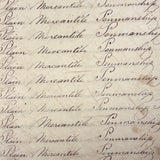 Plain Mercantile Penmanship
Plain Mercantile Penmanship
Plain Mercantile Penmanship
Plain Mercantile Penmanship
Plain Mercantile Penmanship
Plain Mercantile Penmanship
Plain Mercantile Penmanship
Plain Mercantile Penmanship
Plain Mercantile Penmanship